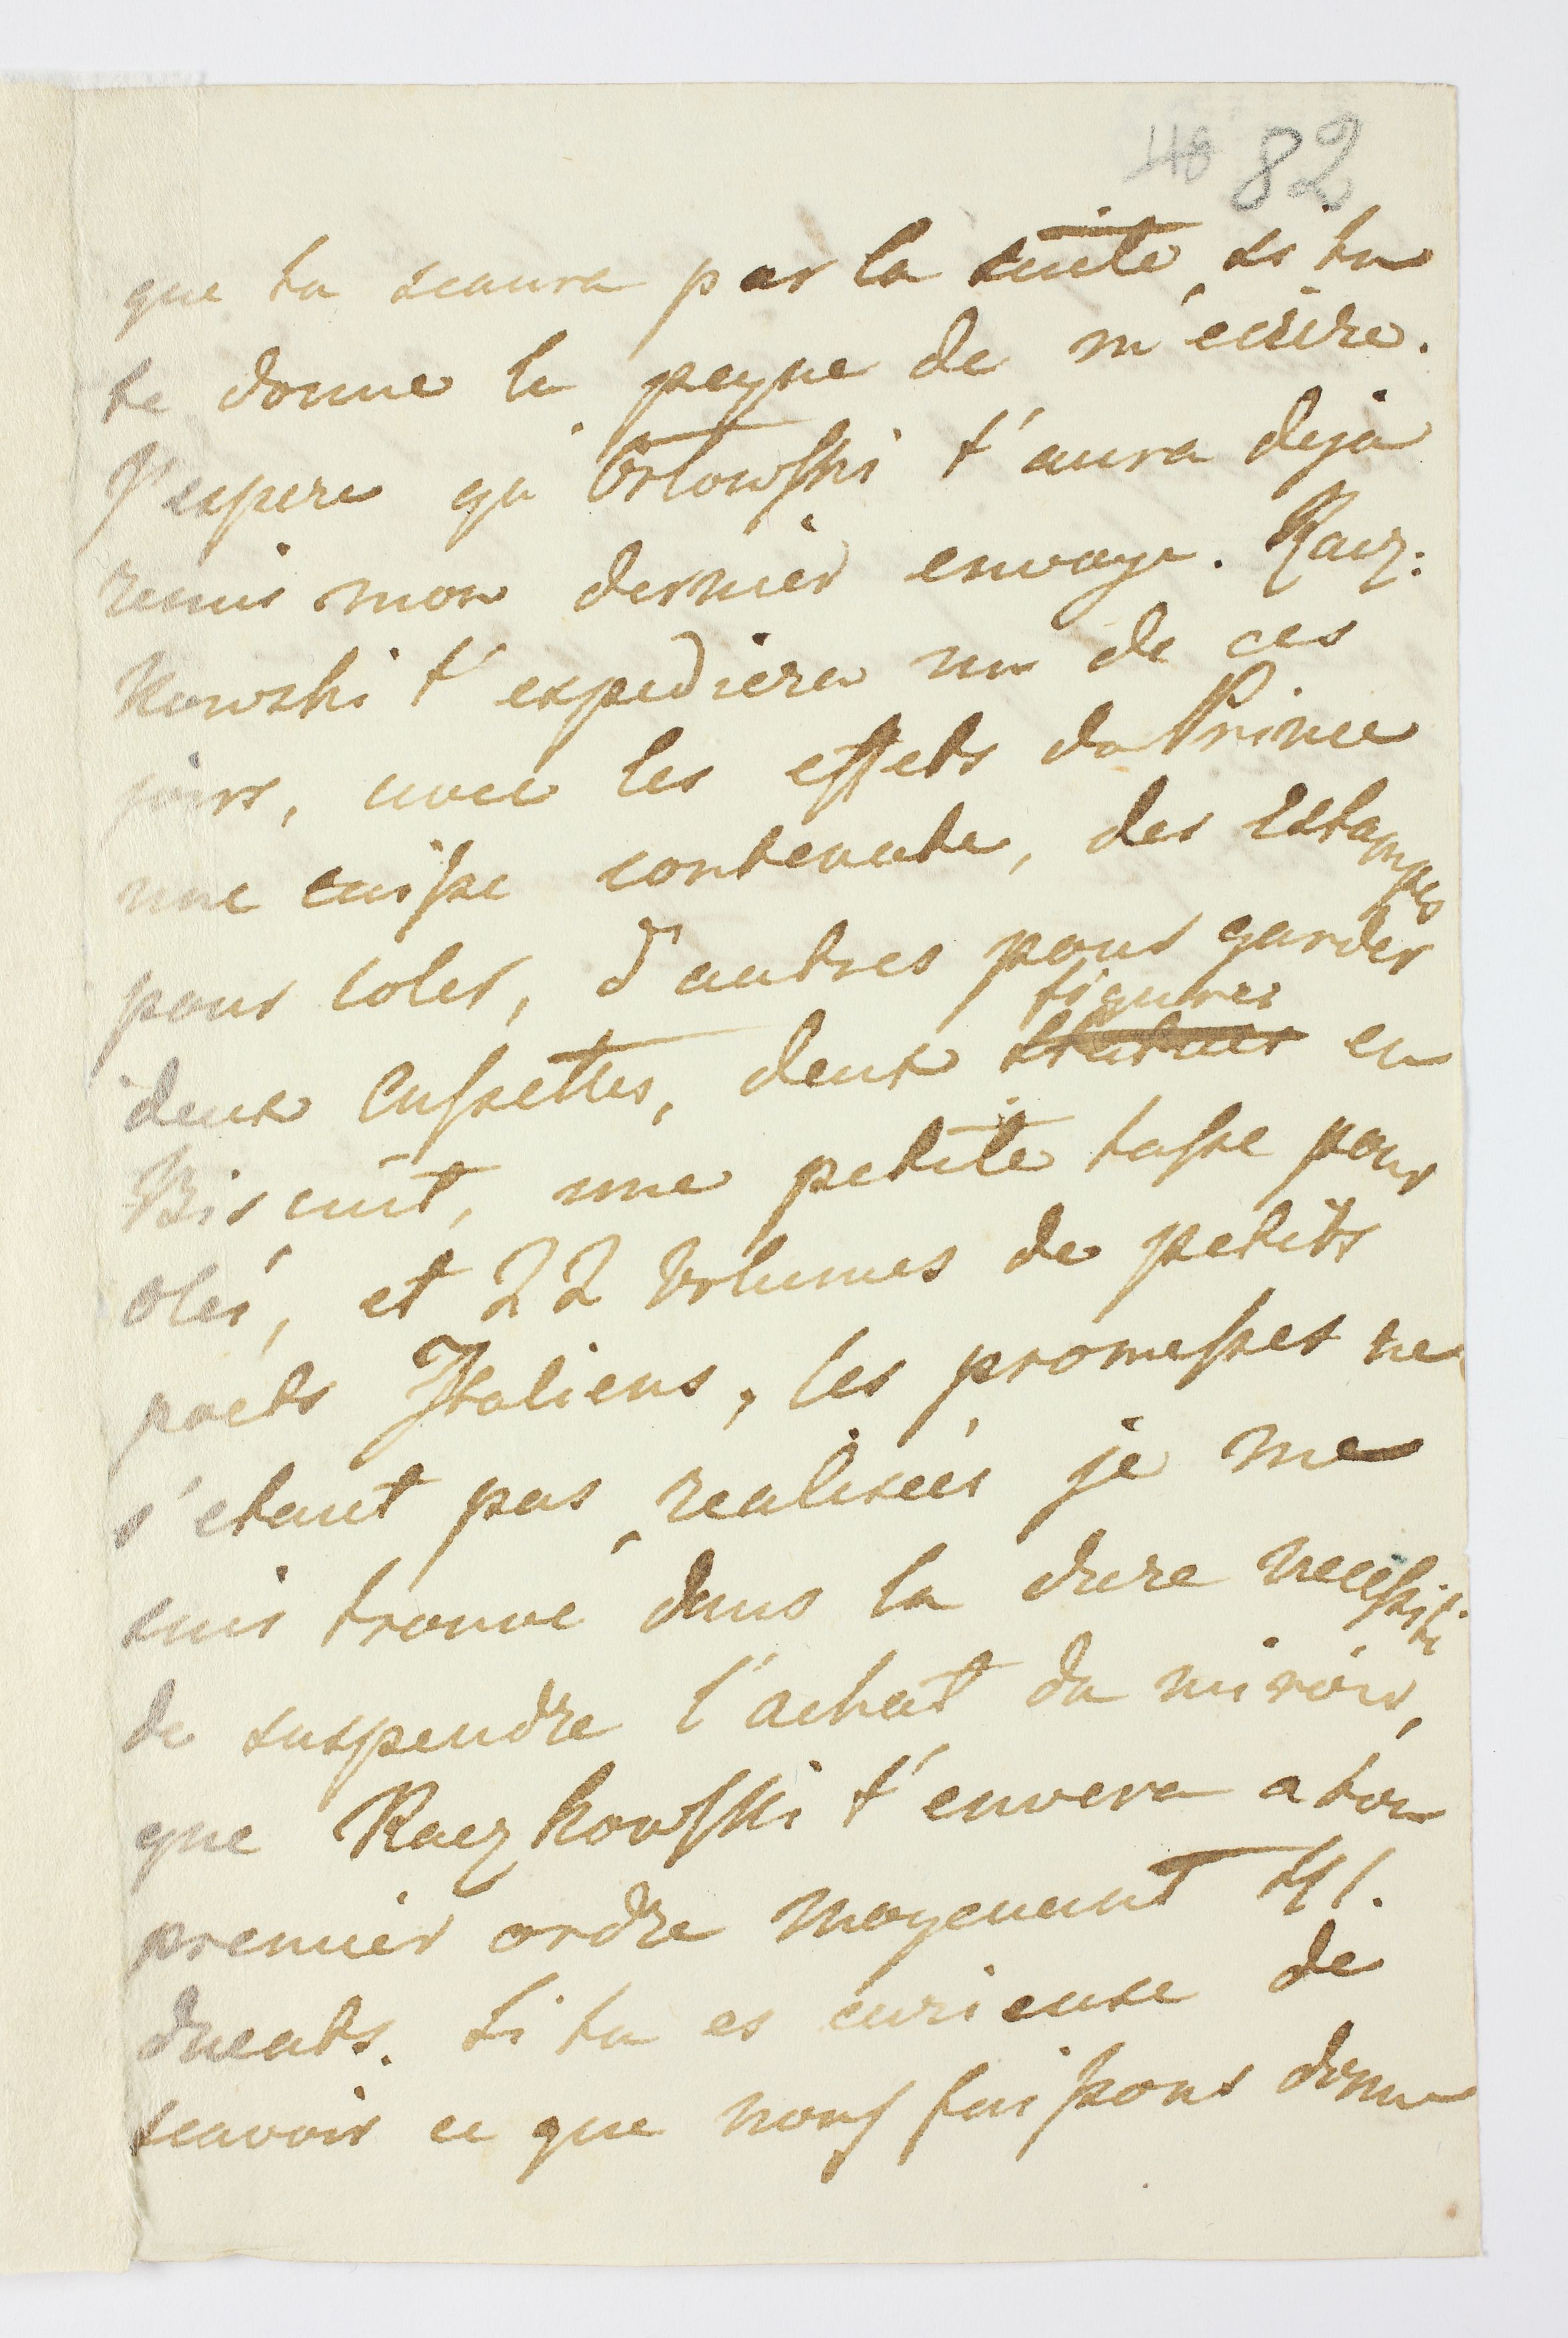 48 82
que tu scaura par la suite, si tu
te donne la peyne de m'ecrire.
J'espere qu'Orlowski t'aura deja
remis mon dernier envoye. Racz:
kowski t'expediera un de ces
jours, avec les effets du Prince
une caisse contenate, des Estampes
pour coler, d'autres pour garder
deux Cassettes, deux statues figures en
Biscuit, une petite tasse pour
olés, et 22 Volumes de petits
poets Italiens, les promesses ne
s'etant pas realiseés je me
suis trouvé dans la dure necessité
de suspendre l'achat du miroir,
que Raczkowski t'envera a ton
premier ordre moyenant 41.
ducats. Si tu es curieuse de
scavoir ce que nous faissons donne